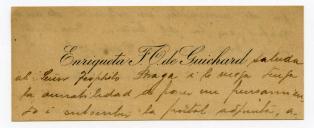 Enriqueta F. de Guichard, saluda
al Señor Teophilo Braga i le ruega tenga
la amabilidad de poner un pensamien
to i subscribir la postal adjunta, a